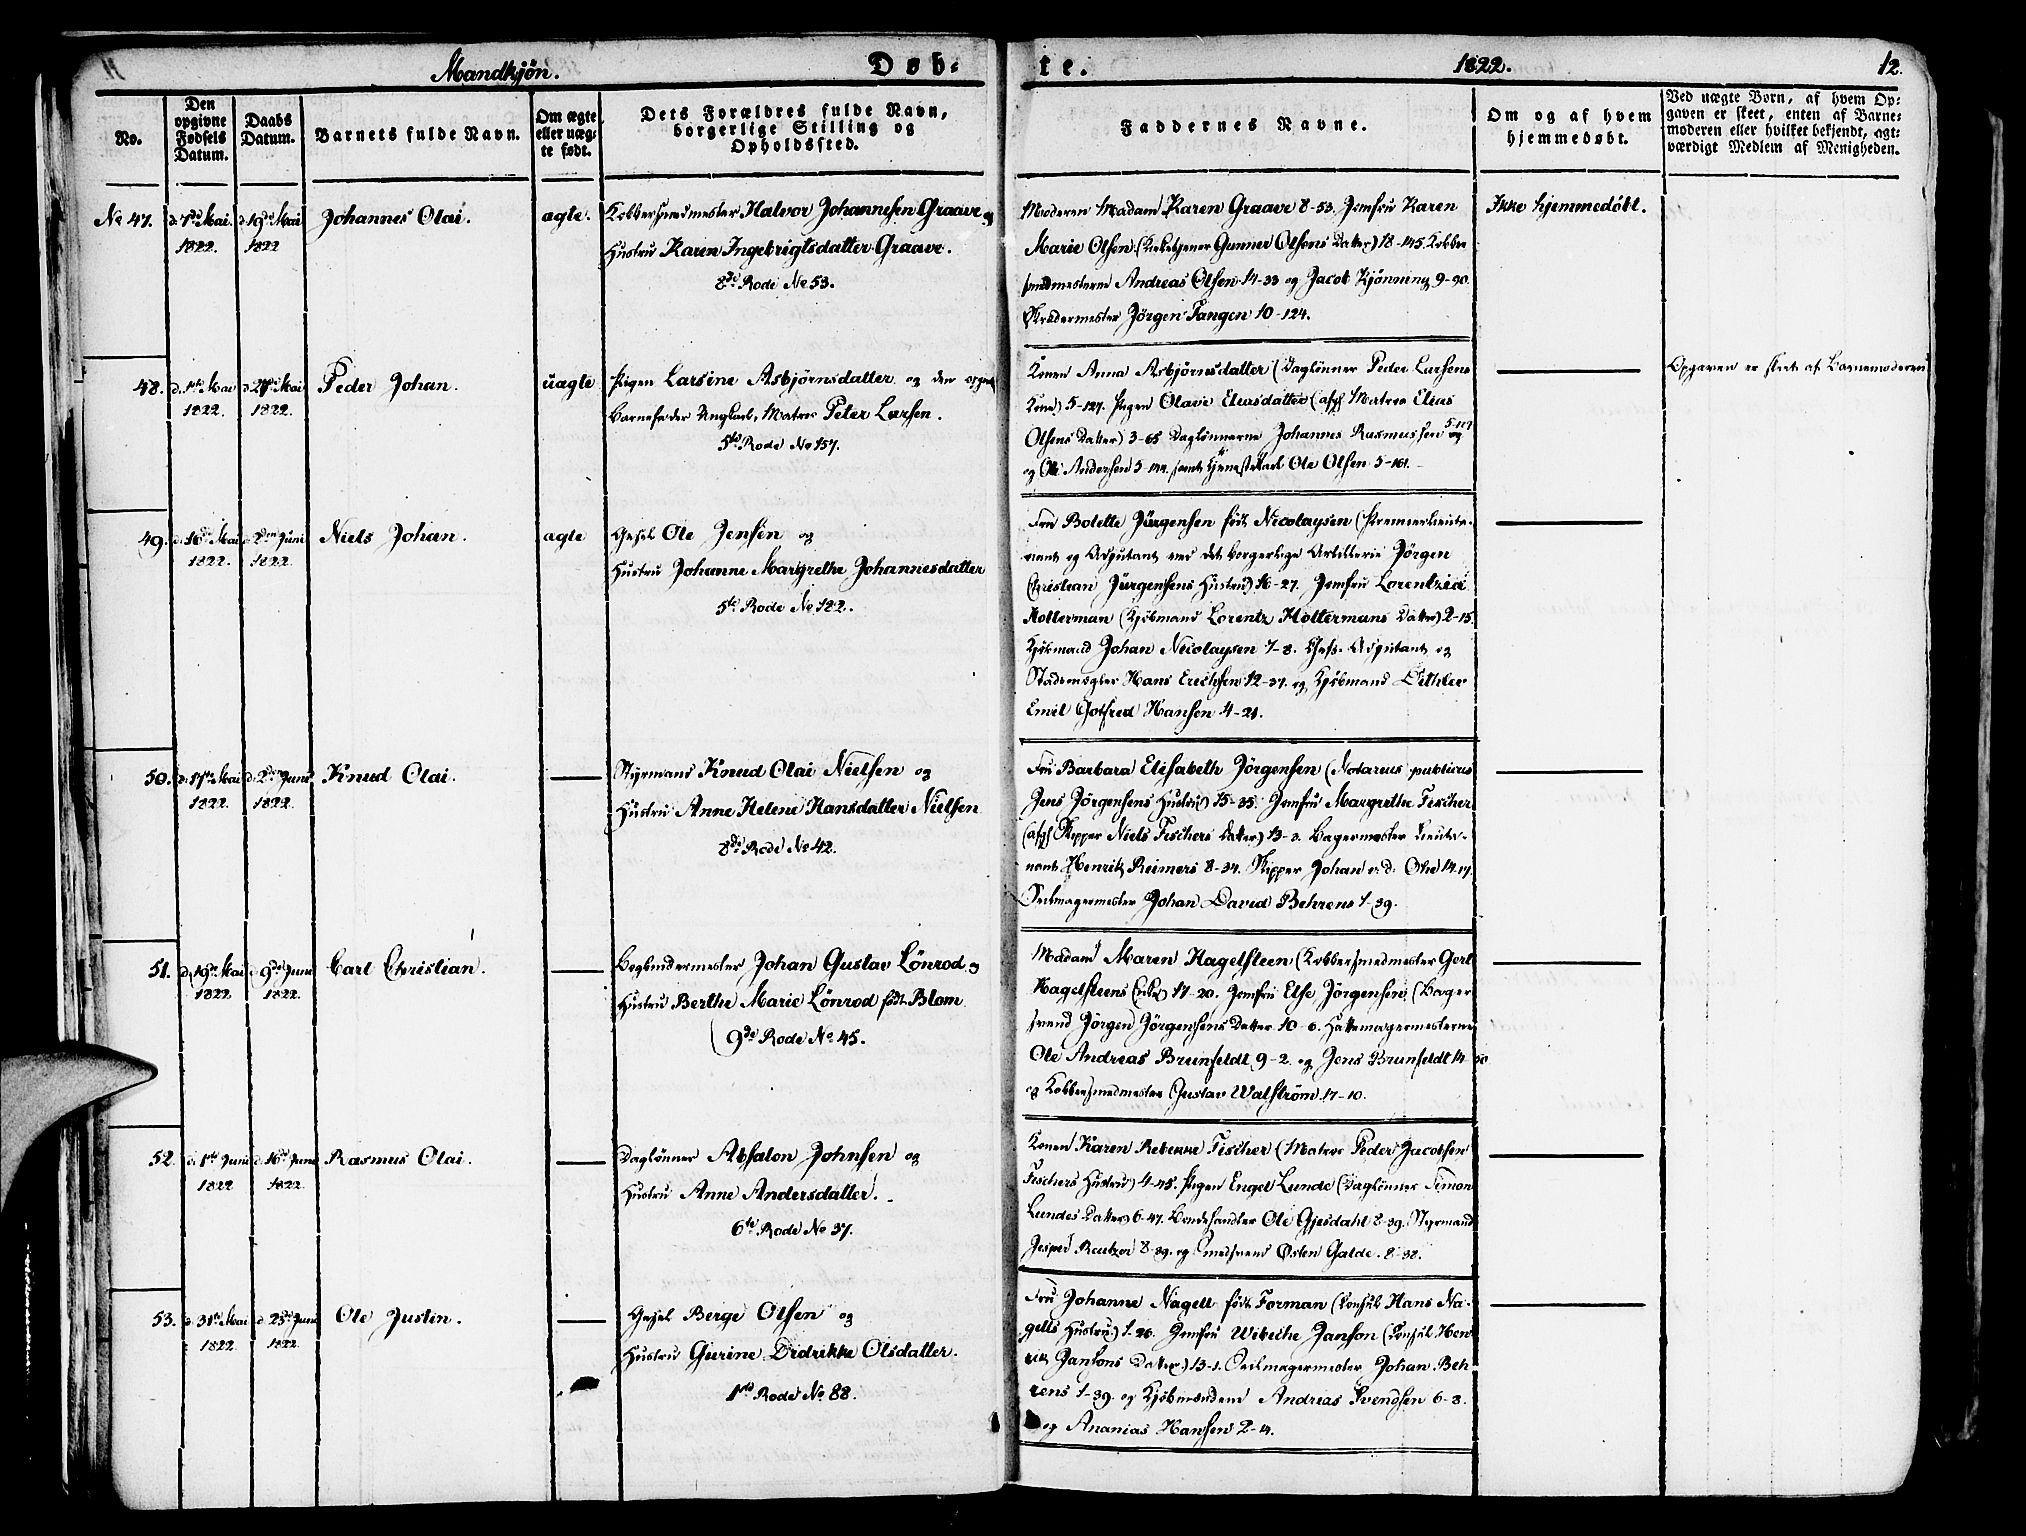 Mandkjøn.
Døb-
te.
1822.
12.
No.
Den opgivne Fødsels Datum.
Daabs Datum.
Barnets fulde Navn.
Om ægte eller uæg-te født.
Dets Forældres fulde Navn, borgerlige Stilling og Opholdssted.
Faddernes Navne.
Om og af hvem hjemmedøbt.
Ved uægte Børn, af hvem Op-
gaven er skeet, enten af Barne-
moderen eller hvilket bekjendt, agt-
værdigt Medlem af Menigheden.
No 47.
d. 7de Mai 1822.
d. 19de Mai 1822
Johannes Olai.
ægte.
Kobbersmedmester Halvor Johannesen Graave og
Hustru Karen Ingebrigtsdatter Graave.
8de Rode No 53.
Moderen Madam Karen Graave 8-53. Jomfru Karen
Marie Olsen (Kirketjener Gunner Olsens Datter) 18-145. Kobber
smedmesterne Andreas Olsen 14-33 og Jacob Kjønning 9-90.
Skrædermester Jörgen Fangen 10-124.
Ikke hjemmedöbt.
48.
d. 1ste Mai 1822.
d. 27de Mai 1822.
Peder Johan.
uægte
Pigen Larsine Asbjørnsdatter og den opgivne
Barnefader Ungkarl, Matros Peter Larsen.
5te Rode No 157.
Konen Anna Asbjörnsdatter (Daglönner Peder Larsens
Kone) 5-127. Pigen Olave Eliasdatter (afg. Matros Elias
Olsens Datter) 3-65 Daglönnerne Johannes Rasmussen
og Ole Andersen samt Tjenestekarl Ole Olsen 5-161.
Opgaven er skeet af Barnemoderen
49.
d. 16de Mai 1822.
d. 2den Juni 1822.
Niels Johan.
ægte
Gesel Ole Jensen og
Hustru Johanne Margrethe Johannesdatter
5te Rode No 122.
Fru Bolette Jürgensen født Nicolaysen (Premierlieute-
nant og Adjutant ved det borgerlige Artillerie Jörgen
Christian Jürgensens Hustru) 16-27. Jomfru Lorentzia
Holterman (Kjöbmand Lorentz Holtermans Datter) 2-15.
Kjöbmand Johan Nicolaysen 7-8. Chefs-Adjutant og
Stadsmægler Hans Erichsen 12-37. og Kjöbmand Dithler
Emil Gotfred Hansen 4-21.
50.
d. 17de Mai 1822.
d. 2den Juni 1822.
Knud Olai.
Styrmand Knud Olai Nielsen og
Hustru Anne Helene Hansdatter Nielsen
8de Rode No 42.
Fru Barbara Elisabeth Jörgensen (Notarius publicus
Jens Jörgensens Hustru) 15-35. Jomfru Margrethe Fischer
(afg. Skipper Niels Fischers Datter) 13-3. Bagermester Lieute-
nant Henrik Reimers 8-34. Skipper Johan v. d. Ohe 14-17.
Seilmagermester Johan David Behrens 1-39.
51.
d. 19de Mai 1822
d. 9de Juni 1822.
Carl Christian.
Bogbindermester Johan Gustav Lönrod og
Hustru Berthe Marie Lönrod født Blom
9de Rode No 45.
Madam Maren Hagelsteen (Kobbersmedmester Gert
Hagelsteens Enke) 17-20. Jomfru Else Jörgensen (Bager
svend Jörgen Jörgensens Datter 10-6. Hattemagermesterne
Ole Andreas Brunfeldt 9-2. og Jens Brunfeldt 14-50
og Kobbersmedmester Gustav Walström 17-10.
52.
d. 1ste Juni 1822
d. 16de Juni 1822.
Rasmus Olai.
Daglönner Absalon Johnsen og
Hustru Anne Andersdatter.
6te Rode No 37.
Konen Karen Rebekke Fischer (Matros Peder Jacobsen
Fischers Hustru) 4-45. Pigen Engel Lunde (Daglönner Simon
Lundes Datter) 6-47. Bondehandler Ole Gjesdahl 8-39. Styrmand
Jesper Reutzer 8-39. og Smedsvend Østen Galde. 8-38.
53.
d. 31te Mai 1822
d. 23de Juni 1822
Ole Justin.
Gesel Berge Olsen og
Hustru Gurine Didrikke Olsdatter.
1ste Rode No 88.
Fru Johanne Nagell født Forman (Konsul Hans Na-
gells Hustru) 1-26. Jomfru Wibeche Janson (Konsul Hen
rik Jansons Datter) 13-1. Seilmagermester Johan Beh
rens 1-39. og Kjöbmændene Andreas Svendsen 6-3.
og Ananias Hansen 2-4.